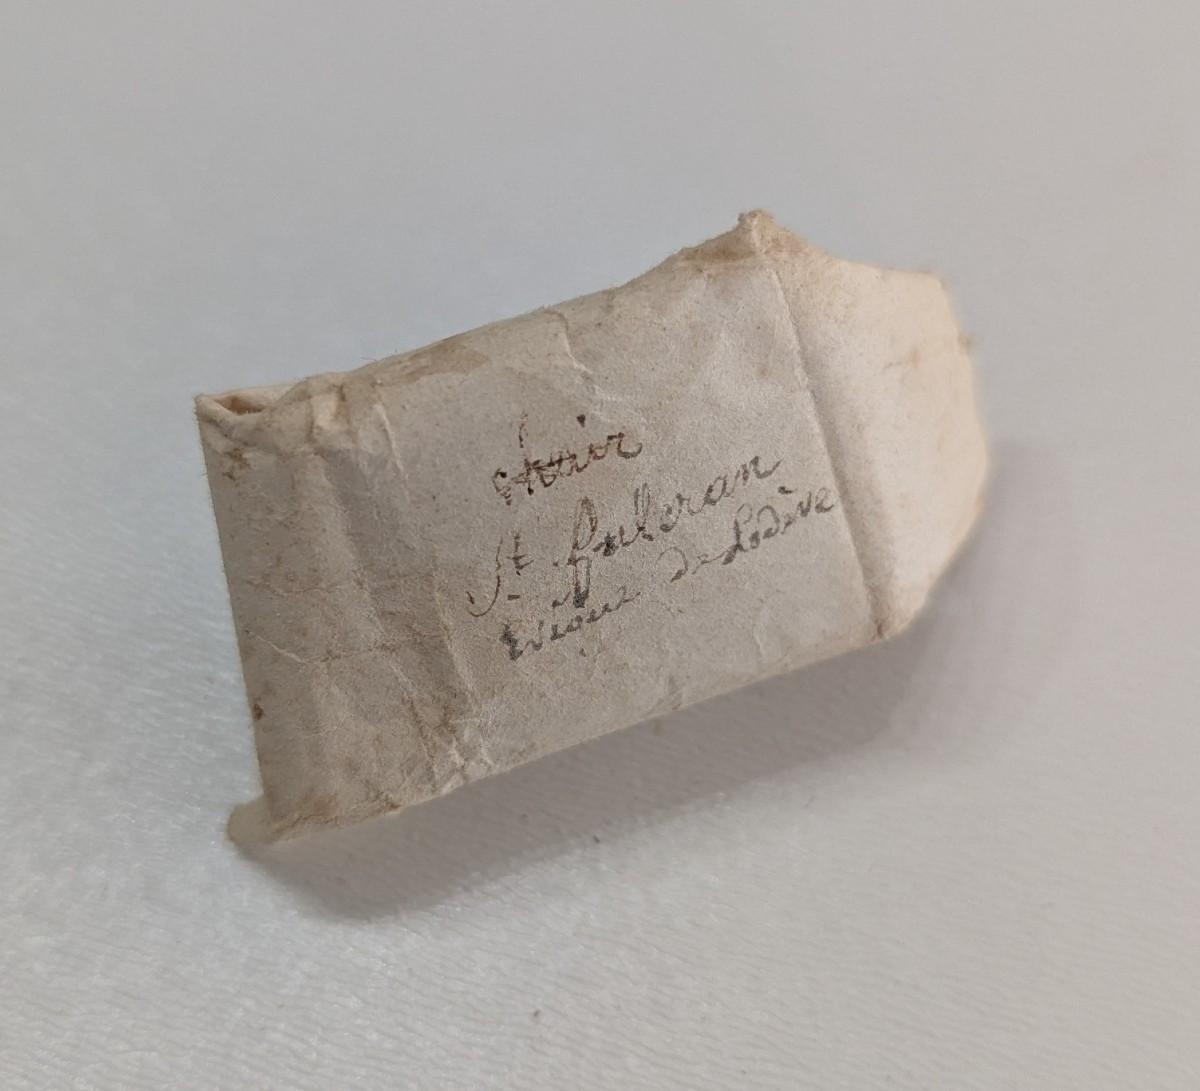 chair
St fulcran
Evêque de Lodève